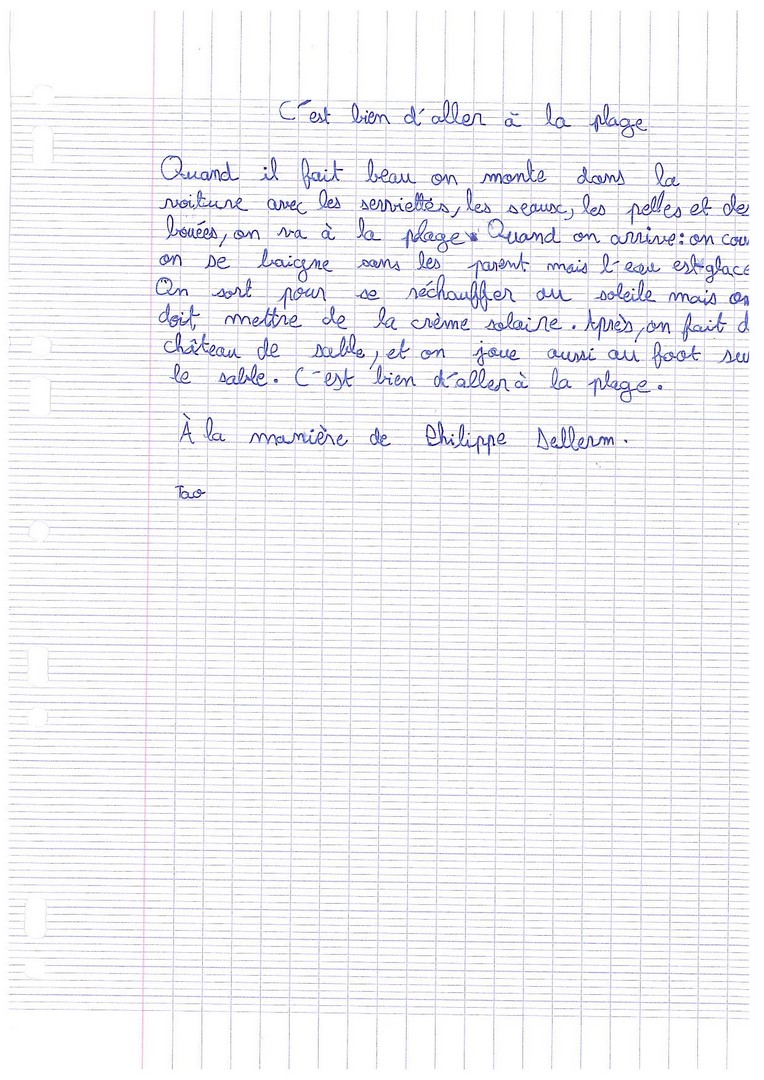 C'est bien d'aller à la plage
Quand il fait beau on monte dans la
voiture avec les serviettes, les seaux, les pelles et de
bouées, on va à la plage. Quand on arrive: on cou
on se baigne sans les parent mais l'eau est glacé
On sort pour se réchauffer au soleile mais on
doit mettre de la crème solaire. Après, on fait d
château de sable, et on joue aussi au foot su
le sable. C'est bien d'aller à la plage.
À la manière de Philippe Dellerm.
Tao